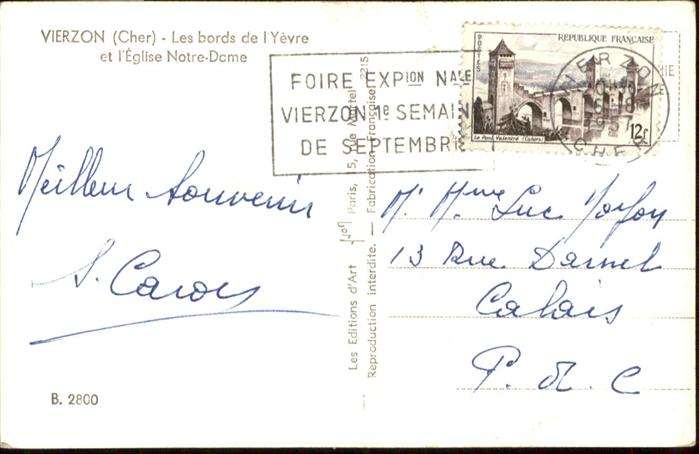 VIERZON (Cher) - Les bords de l'Yèvre
et l'Église Notre-Dame
FOIRE EXPION NALE
VIERZON 1e SEMAIN
DE SEPTEMBRE
POSTES
REPUBLIQUE FRANÇAISE
Le Pont Valentré (Cahors)
12f
VIERZON
CHER
Meilleur souvenir
Les Editions d'Art Yvon Paris, 15, rue Martel
Reproduction interdite. — Fabrication Française 2215
Mr Mme Luc
13 Rue
Calais
P. d. C
B. 2800